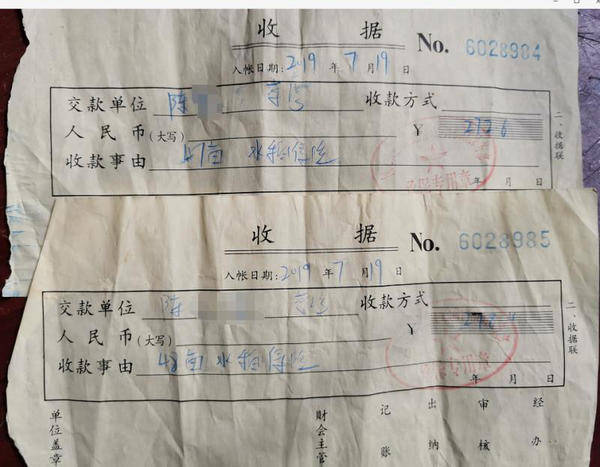 收 据 No. 6028984
入帐日期:2019 年 7 月 19 日
交款单位 陈 收款方式
人民币(大写) ¥ 2726
收款事由 47亩 水稻保险
年 月 日
二、收据联
收 据 No. 6028985
入帐日期:2019 年 7 月 19 日
交款单位 陈 收款方式
人民币(大写) ¥
收款事由 48亩 水稻保险
年 月 日
二、收据联
单位盖章 财会主管 记账 出纳 审核 经办